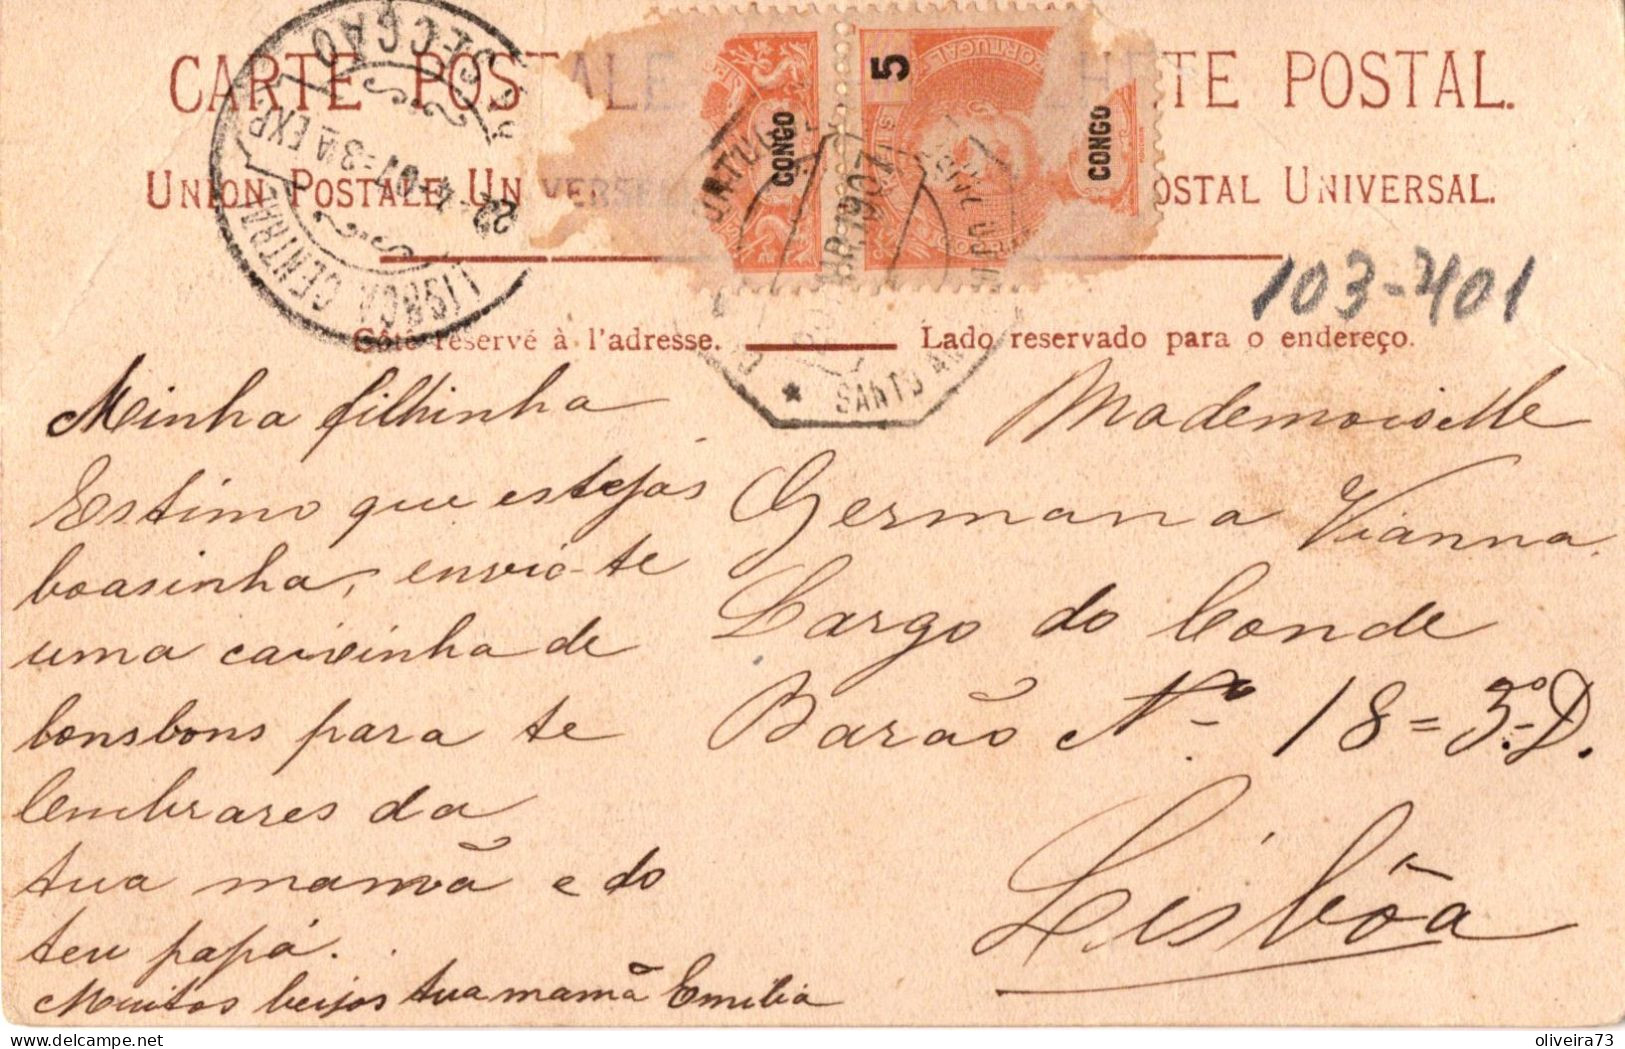 CARTE POSTALE HETE POSTAL.
UNION POSTALE UNIVERSE OSTAL UNIVERSAL.
SECÇÃO
LISBOA CENTRAL
5
PORTUGAL
CONGO
CONGO
1907
SANTO AN
103-401
Côté reservé à l'adresse. Lado reservado para o endereço.
Minha filhinha
Estimo que estejas
boasinha, envio-te
uma caixinha de
bonsbons para te
lembrares da
tua mamã e do
teu papá.
Muitos beijos tua mamã Emilia
Mademoiselle
Germana Vianna
Largo do Conde
Barão Nº 18=3.º D.
Lisbôa
delcampe.net
oliveira73